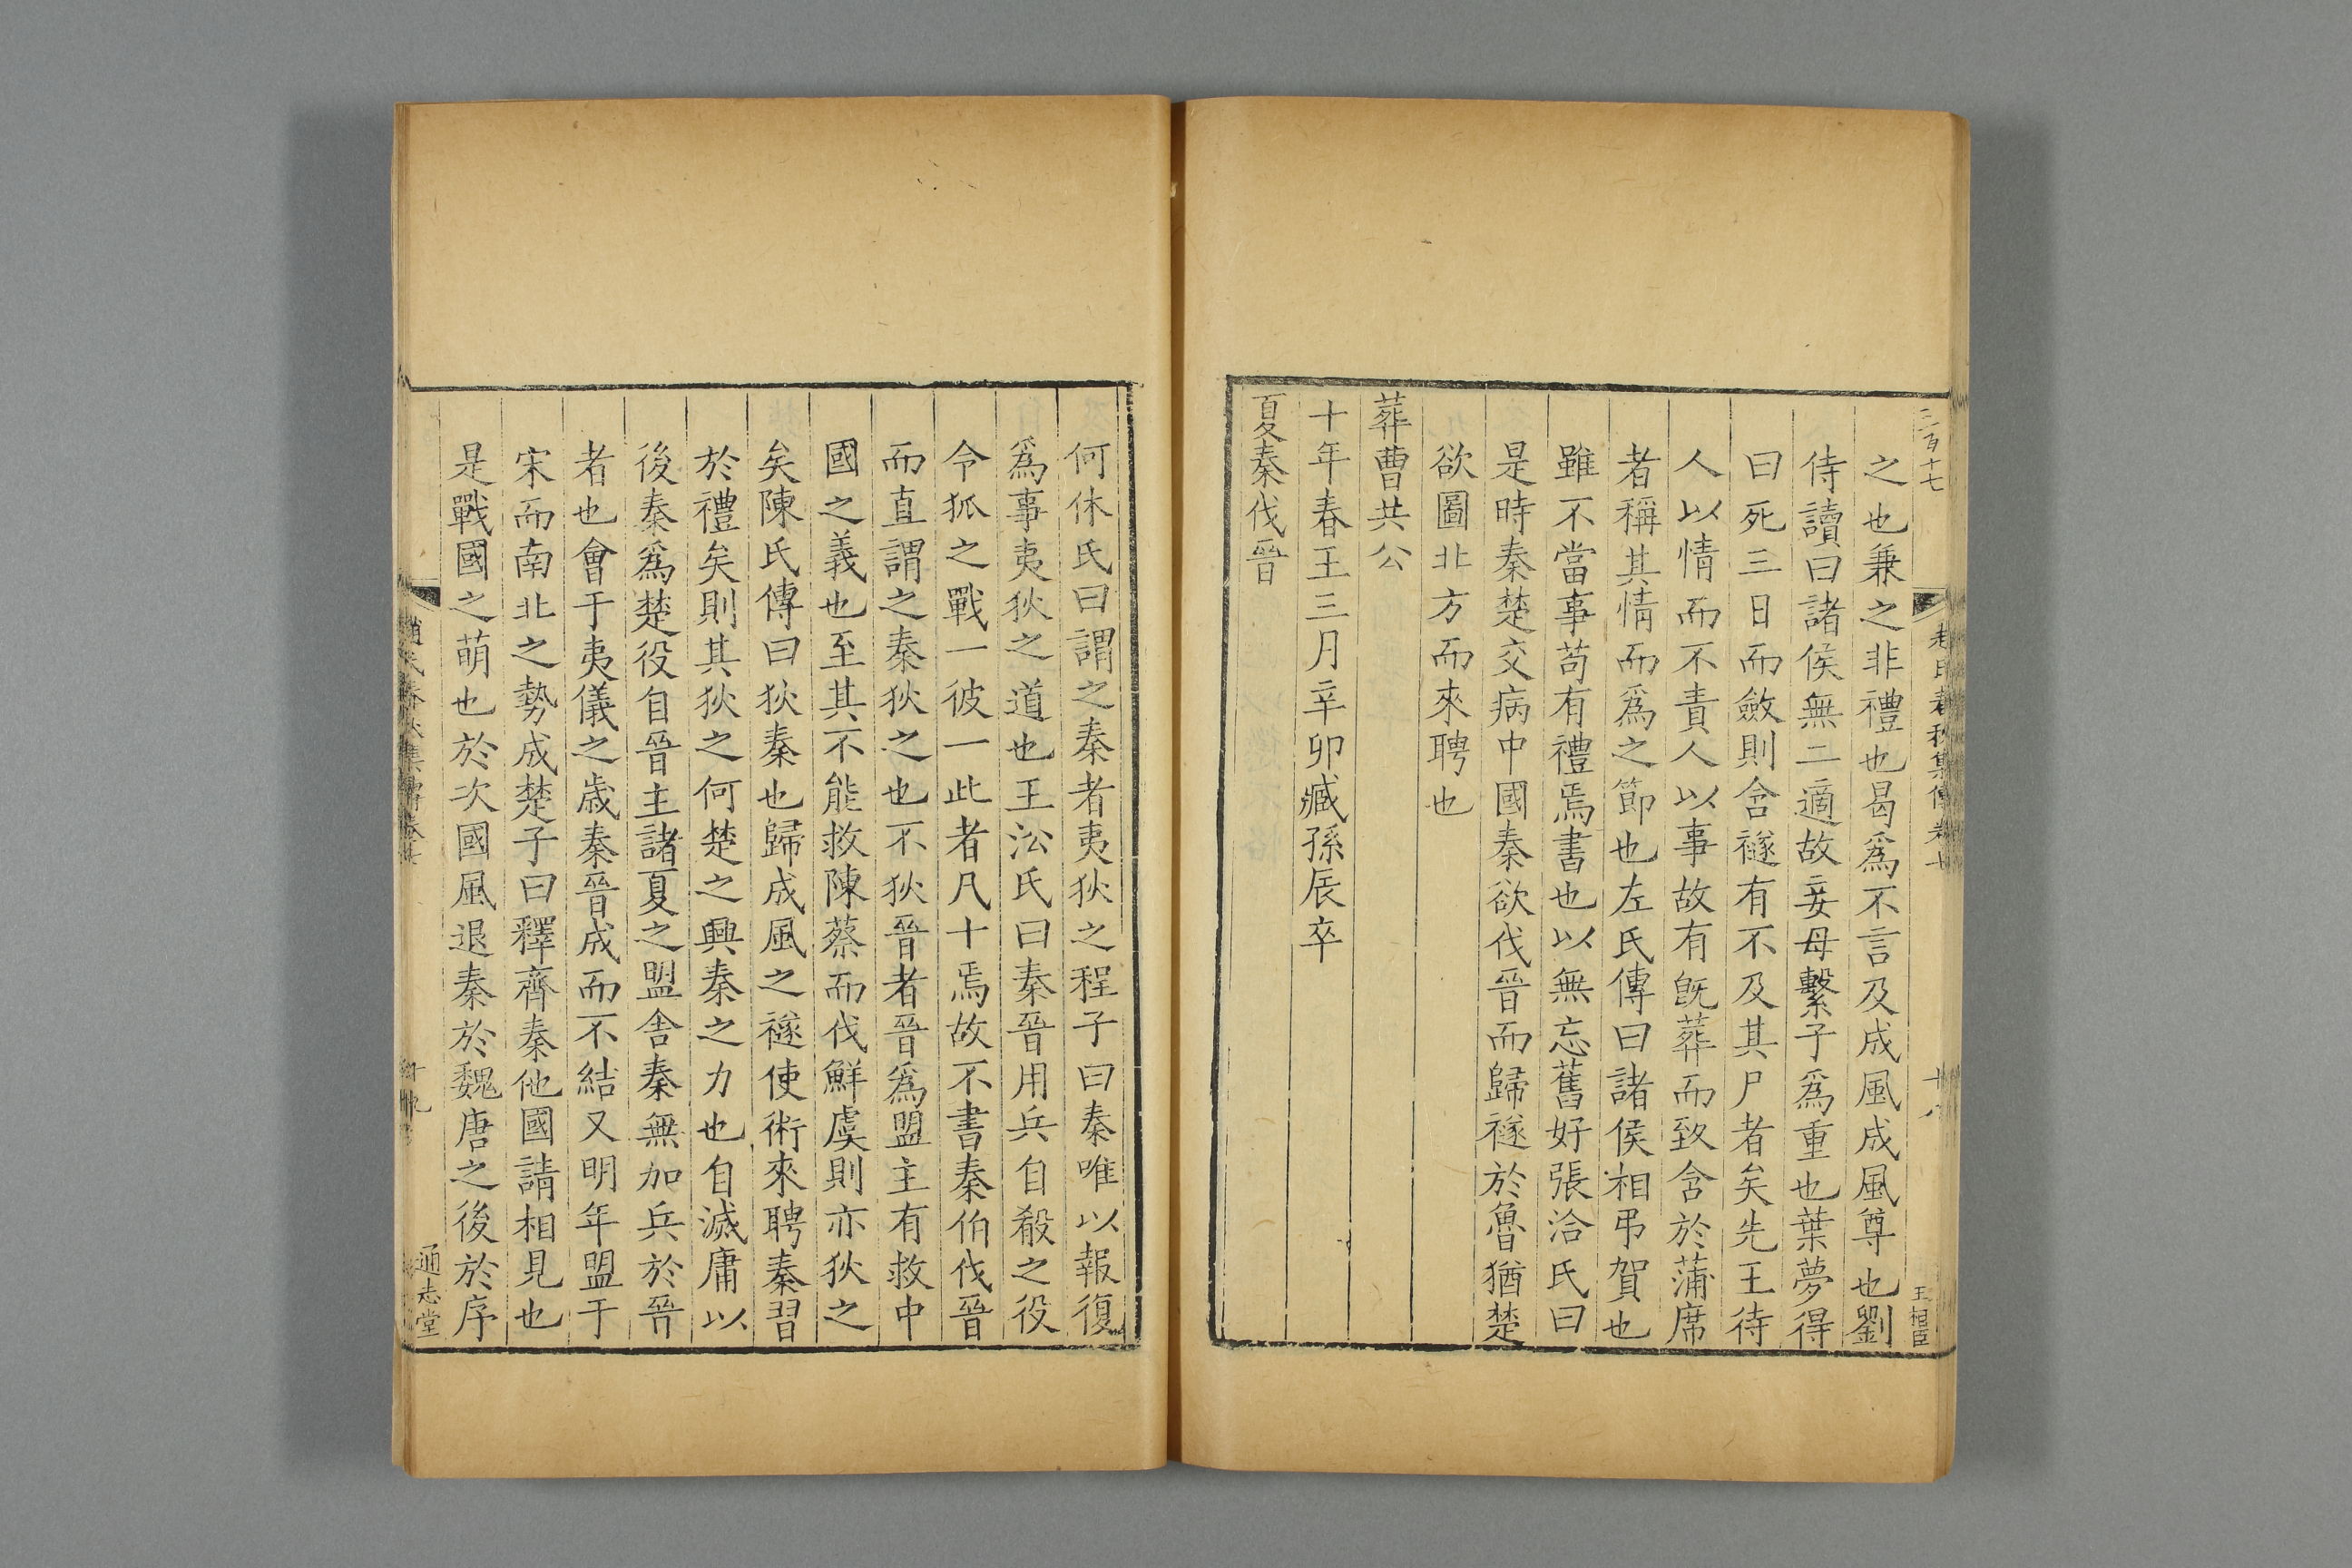 二百十七
王相臣
之也兼之非禮也曷爲不言及成風成風尊也劉
侍讀曰諸侯無二適故妾母繫子爲重也葉夢得
曰死三日而斂則含襚有不及其尸者矣先王待
人以情而不責人以事故有旣葬而致含於蒲席
者稱其情而爲之節也左氏傳曰諸侯相弔賀也
雖不當事苟有禮焉書也以無忘舊好張洽氏曰
是時秦楚交病中國秦欲伐晉而歸襚於魯猶楚
欲圖北方而來聘也
葬曹共公
十年春王三月辛卯臧孫辰卒
夏秦伐晉
何休氏曰謂之秦者夷狄之程子曰秦唯以報復
爲事夷狄之道也王㳂氏曰秦晉用兵自殽之役
令狐之戰一彼一此者凡十焉故不書秦伯伐晉
而直謂之秦狄之也不狄晉者晉爲盟主有救中
國之義也至其不能救陳蔡而伐鮮虞則亦狄之
矣陳氏傳曰狄秦也歸成風之襚使術來聘秦習
於禮矣則其狄之何楚之興秦之力也自滅庸以
後秦爲楚役自晉主諸夏之盟舍秦無加兵於晉
者也會于夷儀之歲秦晉成而不結又明年盟于
宋而南北之勢成楚子曰釋齊秦他國請相見也
是戰國之萌也於次國風退秦於魏唐之後於序
通志堂